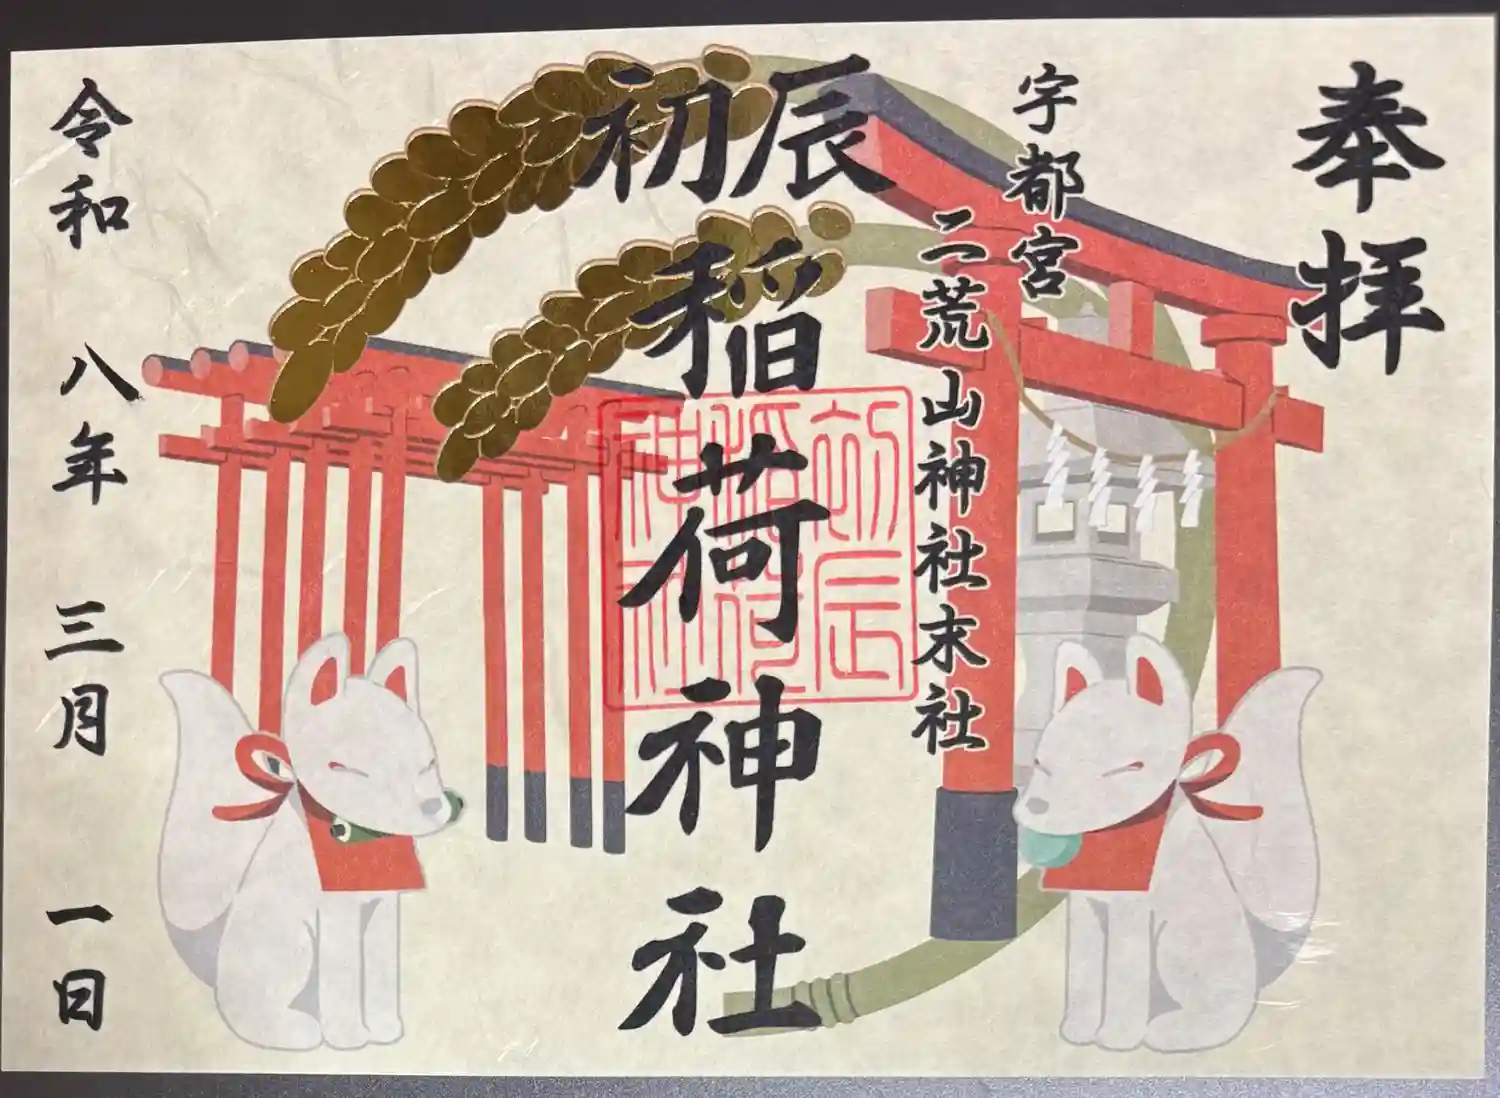 奉拝
宇都宮
二荒山神社末社
初辰
稲荷神社
令和八年三月一日
初辰
稲荷
神社